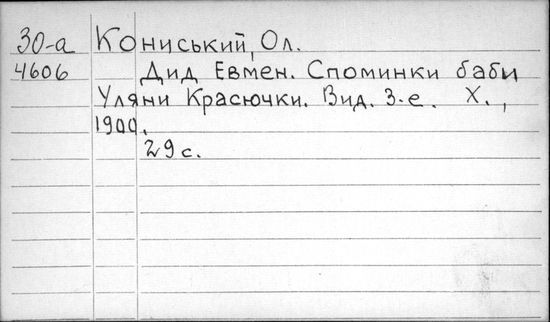 30-а Кониський, Ол.
4606 Дид Евмен. Споминки баби
Уляни Красючки. Вид. 3-е. Х.,
1900.
29 с.